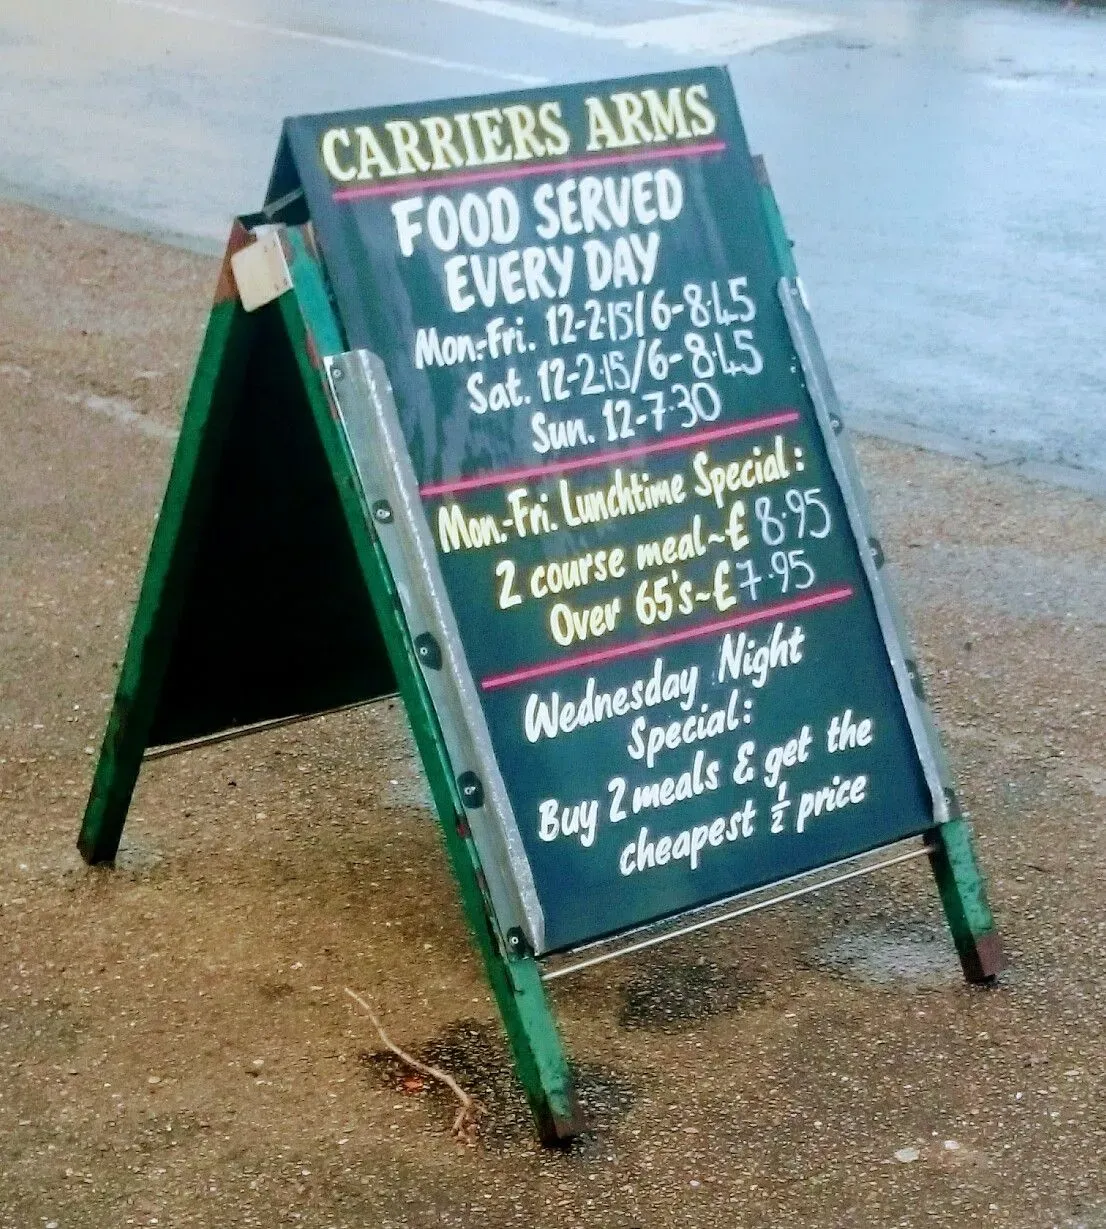 CARRIERS ARMS
FOOD SERVED
EVERY DAY
Mon.-Fri. 12-2·15/6-8·45
Sat. 12-2·15/6-8·45
Sun. 12-7·30
Mon.-Fri. Lunchtime Special:
2 course meal~£8·95
Over 65's~£7·95
Wednesday Night
Special:
Buy 2 meals & get the
cheapest ½ price